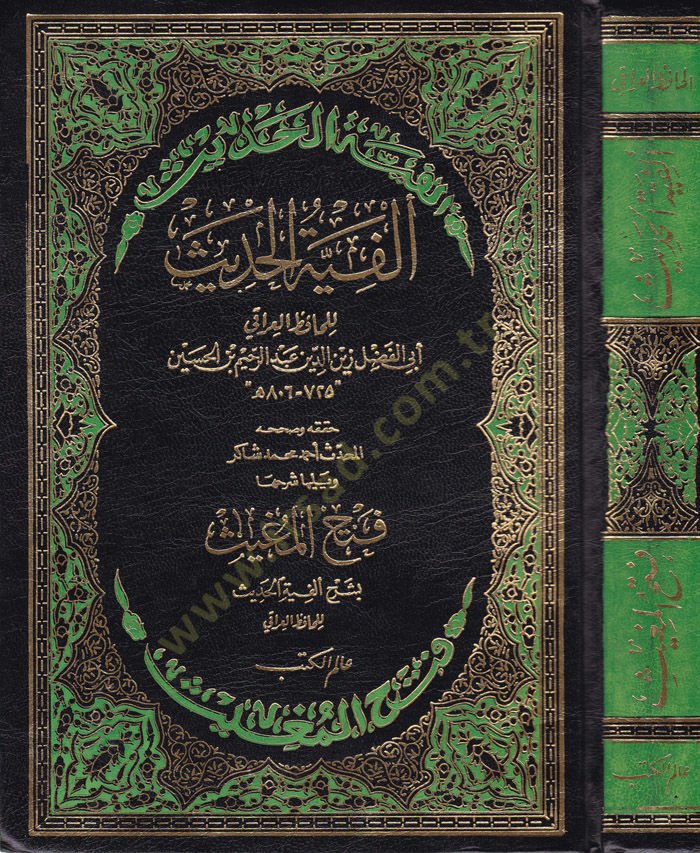 ألفية الحديث
ألفية الحديث
للحافظ العراقي
أبي الفضل زين الدين عبد الرحيم بن الحسين
"٧٢٥-٨٠٦ه"
حققه وصححه
المحدث أحمد محمد شاكر
ويليها شرحها
فتح المغيث
بشرح ألفية الحديث
للحافظ العراقي
عالم الكتب
فتح المغيث
الحافظ العراقي
ألفية الحديث
فتح المغيث
عالم الكتب